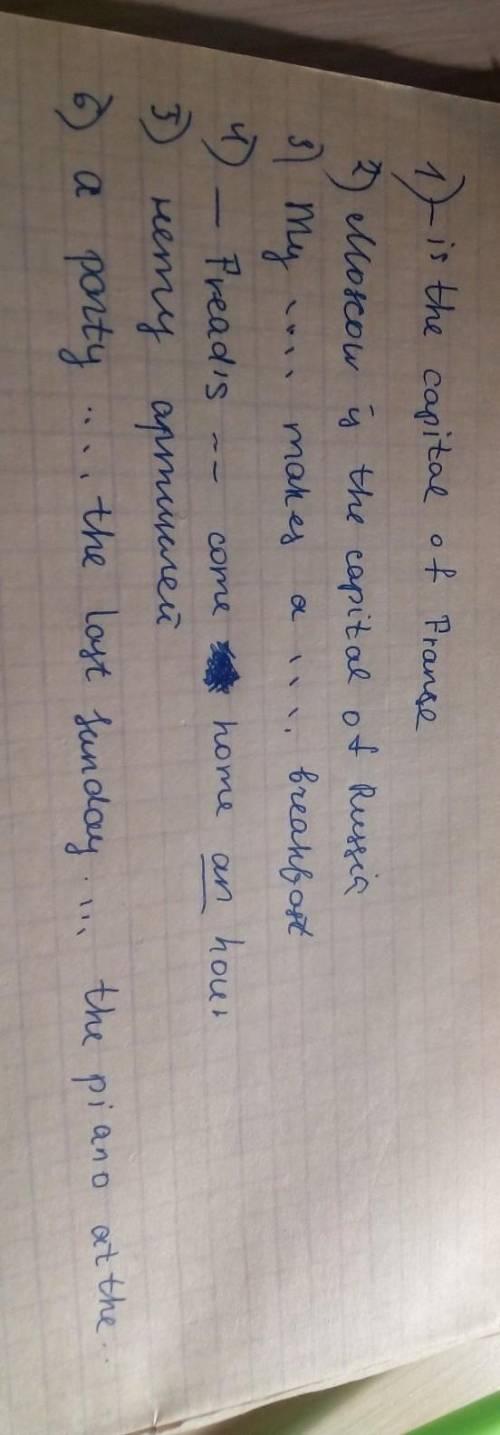 1) – is the capital of Franse
2) Moscow is the capital of Russia
3) My .... makes a .... breakfast
4) — Fread's -- come home an hour
5) нету артиклей
6) a party .... the last sunday .... the piano at the ..